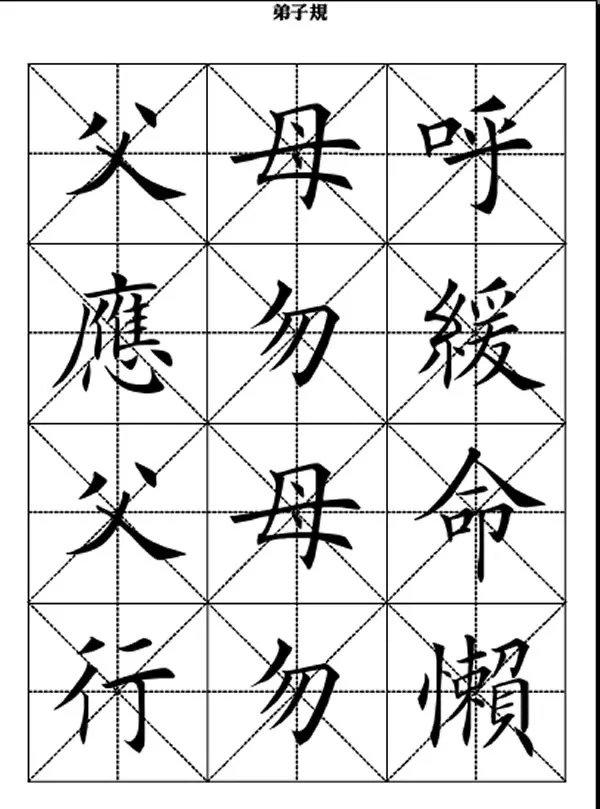 弟子規
父母呼
應勿緩
父母命
行勿懶